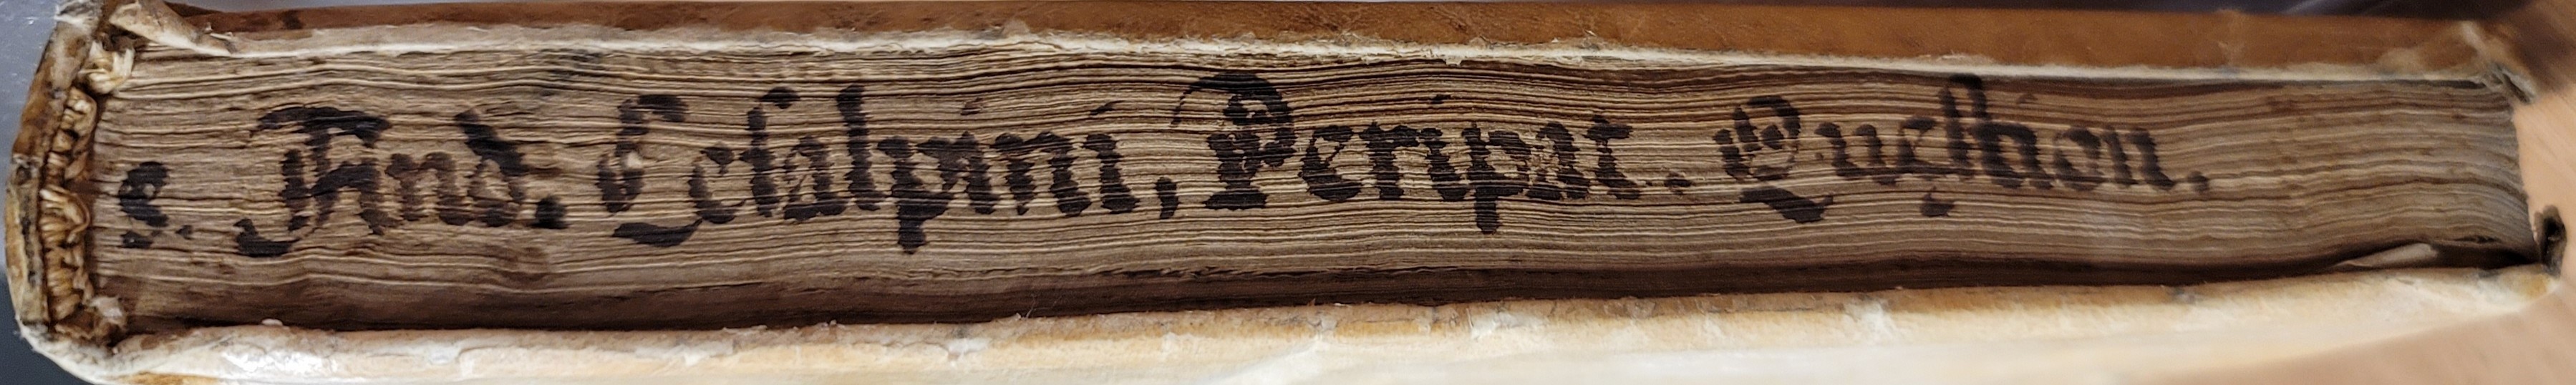 8. And. Cesalpini, Peripat. Quęstion.